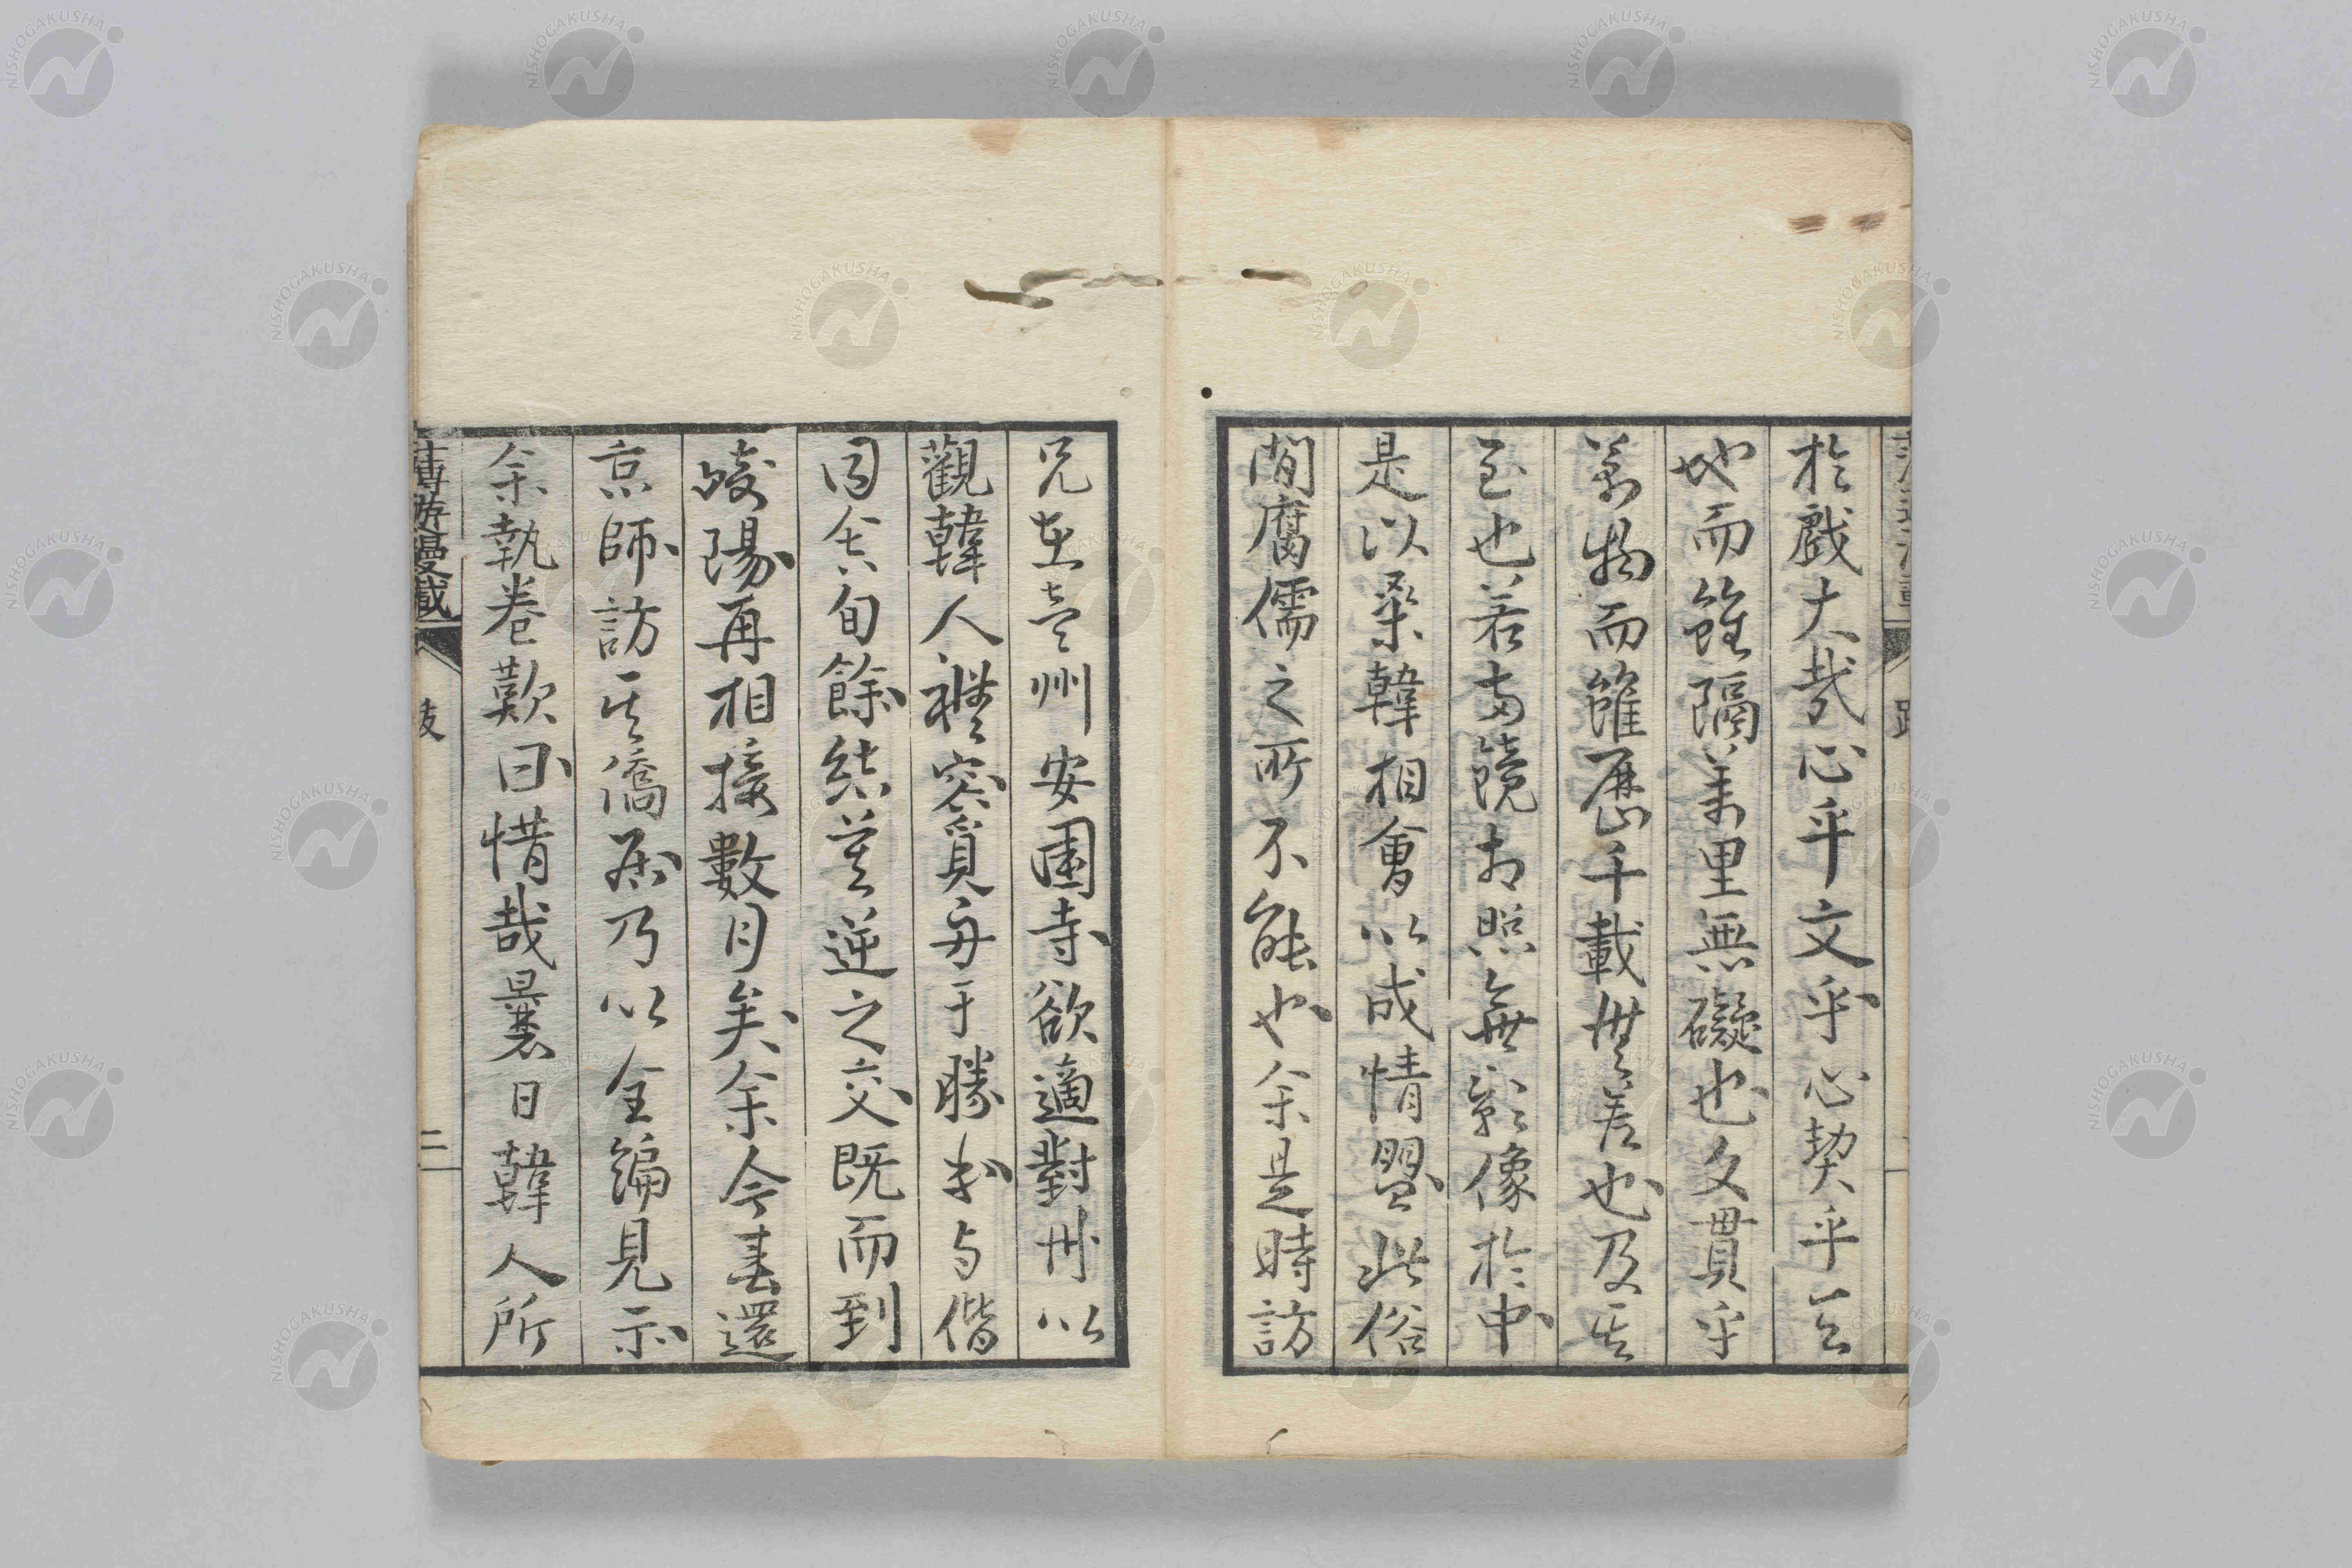 於戯大哉心乎文乎心契乎天
地而雖隔萬里無礙也文貫乎
萬物而雖歴千載無差也及其
至也若両鏡相照無影像於中
是以桑韓相會以成情盟此俗
間腐儒之所不能也余是時訪
兄在壱州安國寺欲適對州以
觀韓人禮容覓舟于勝本与偕
同舎旬餘結莫逆之交既而到
陽再相接數月矣余今春還
京師訪其僑居乃以全編見示
余執巻歎曰惜哉曩日韓人所
游漫載 跋 二
NISHOGAKUSHA